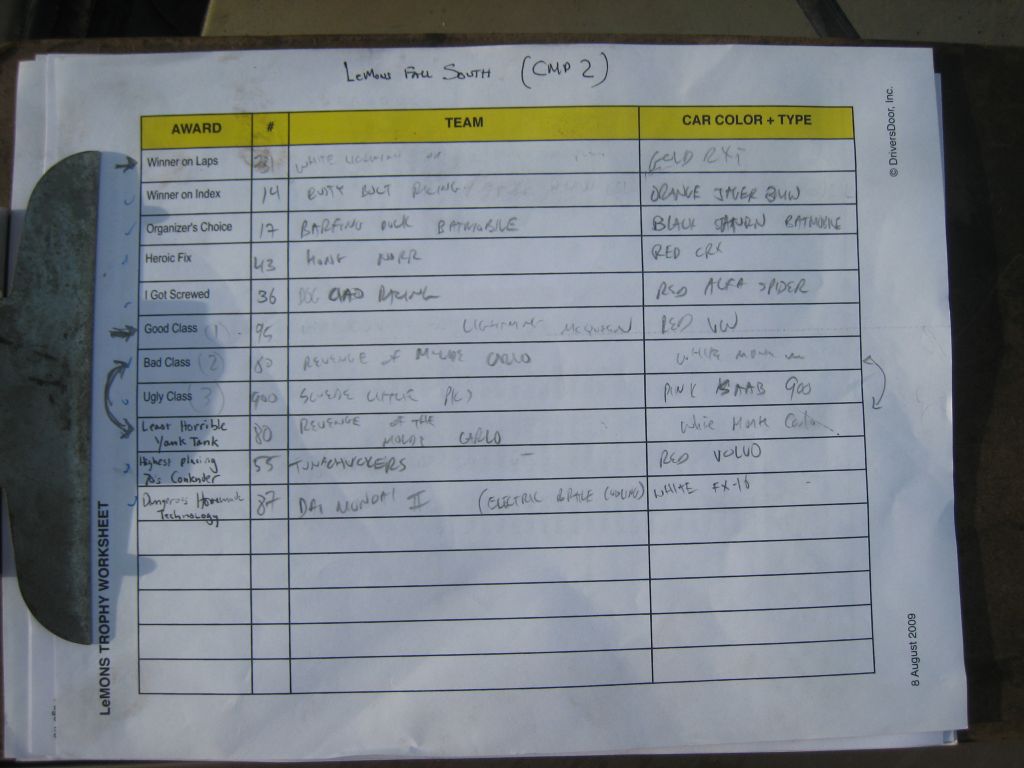 LeMons Fall South (CMP 2)
AWARD # TEAM CAR COLOR + TYPE
Winner on Laps WHITE GOLD
Winner on Index 14 RUSTY BOLT RACING ORANGE JAGER BMW
Organizer's Choice 17 BARFING DUCK BATMOBILE BLACK SATURN BATMOBILE
Heroic Fix 43 HONG NORR RED CRX
I Got Screwed 36 RACING RED ALFA SPIDER
Good Class (1) 95 LIGHTNING MCQUEEN RED VW
Bad Class (2) 80 REVENGE OF CARLO WHITE
Ugly Class (3) 900 PINK SAAB 900
Least Horrible
Yank Tank 80 REVENGE OF THE
CARLO White Monte Carlo
Highest placing
70's Contender 55 TUNACHUCKERS RED VOLVO
Dangerous Homemade
Technology 87 II (ELECTRIC WHITE FX-16
LeMONS TROPHY WORKSHEET
© DriversDoor, Inc.
8 August 2009